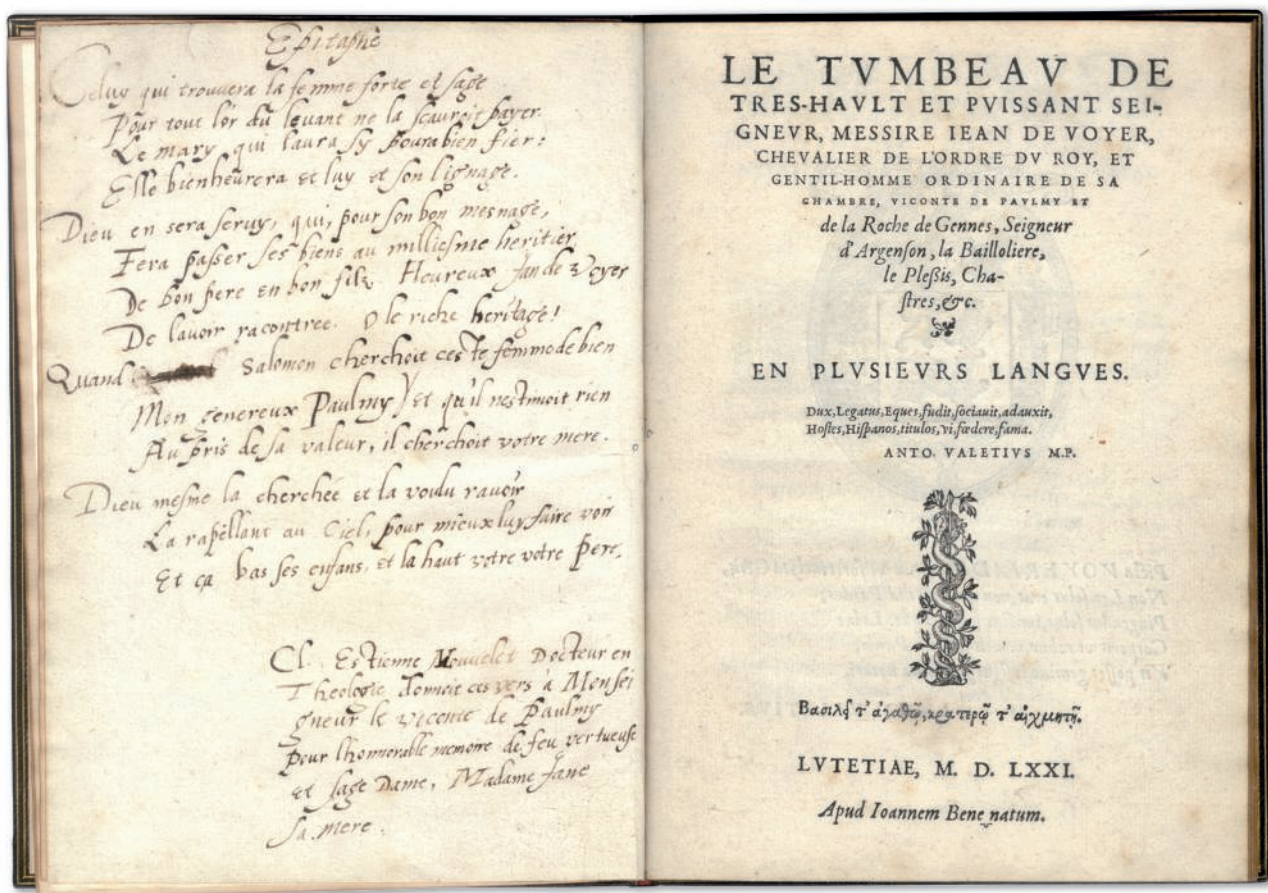 Epitaphe
Celuy qui trouvera la femme forte et sage
Pour tout l'or du levant ne la scauroit payer.
Le mary qui laura sy poura bien fier:
Elle bienheurera et luy et son lignage.
Dieu en sera servy, qui, pour son bon mesnage,
Fera passer ses biens au milliesme heritier
De bon pere en bon filz. Heureux Jan de Voyer
De lavoir racontree. O le riche heritage!
Quand Salomon cherchoit ceste femme de bien
Mon genereux Paulmy) et qu'il nestimoit rien
Au pris de sa valeur, il cherchoit votre mere.
Dieu mesme la cherchee et la voulu ravoir
La rapellant au Ciel, pour mieux luy faire voir
Et ça bas ses enfans, et la haut votre votre pere.
Cl. Estienne Nouvelet Docteur en
Theologie donnoit ces vers à Monsei
gneur le viconte de Paulmy
pour lhonnorable memoire de feu vertueuse
et sage Dame, Madame Jane
sa mere.
LE TVMBEAV DE
TRES-HAVLT ET PVISSANT SEI-
GNEVR, MESSIRE IEAN DE VOYER,
CHEVALIER DE L'ORDRE DV ROY, ET
GENTIL-HOMME ORDINAIRE DE SA
CHAMBRE, VICONTE DE PAVLMY ET
de la Roche de Gennes, Seigneur
d'Argenson, la Bailloliere,
le Plessis, Cha-
stres, &c.
EN PLVSIEVRS LANGVES.
Dux, Legatus, Eques, fudit, sociauit, adauxit,
Hostes, Hispanos, titulos, vi, fœdere, fama.
ANTO. VALETIVS M.P.
Βασιλεῖ τ' ἀγαθῷ, κρατερῷ τ' αἰχμητῇ.
LVTETIAE, M. D. LXXI.
Apud Ioannem Bene natum.